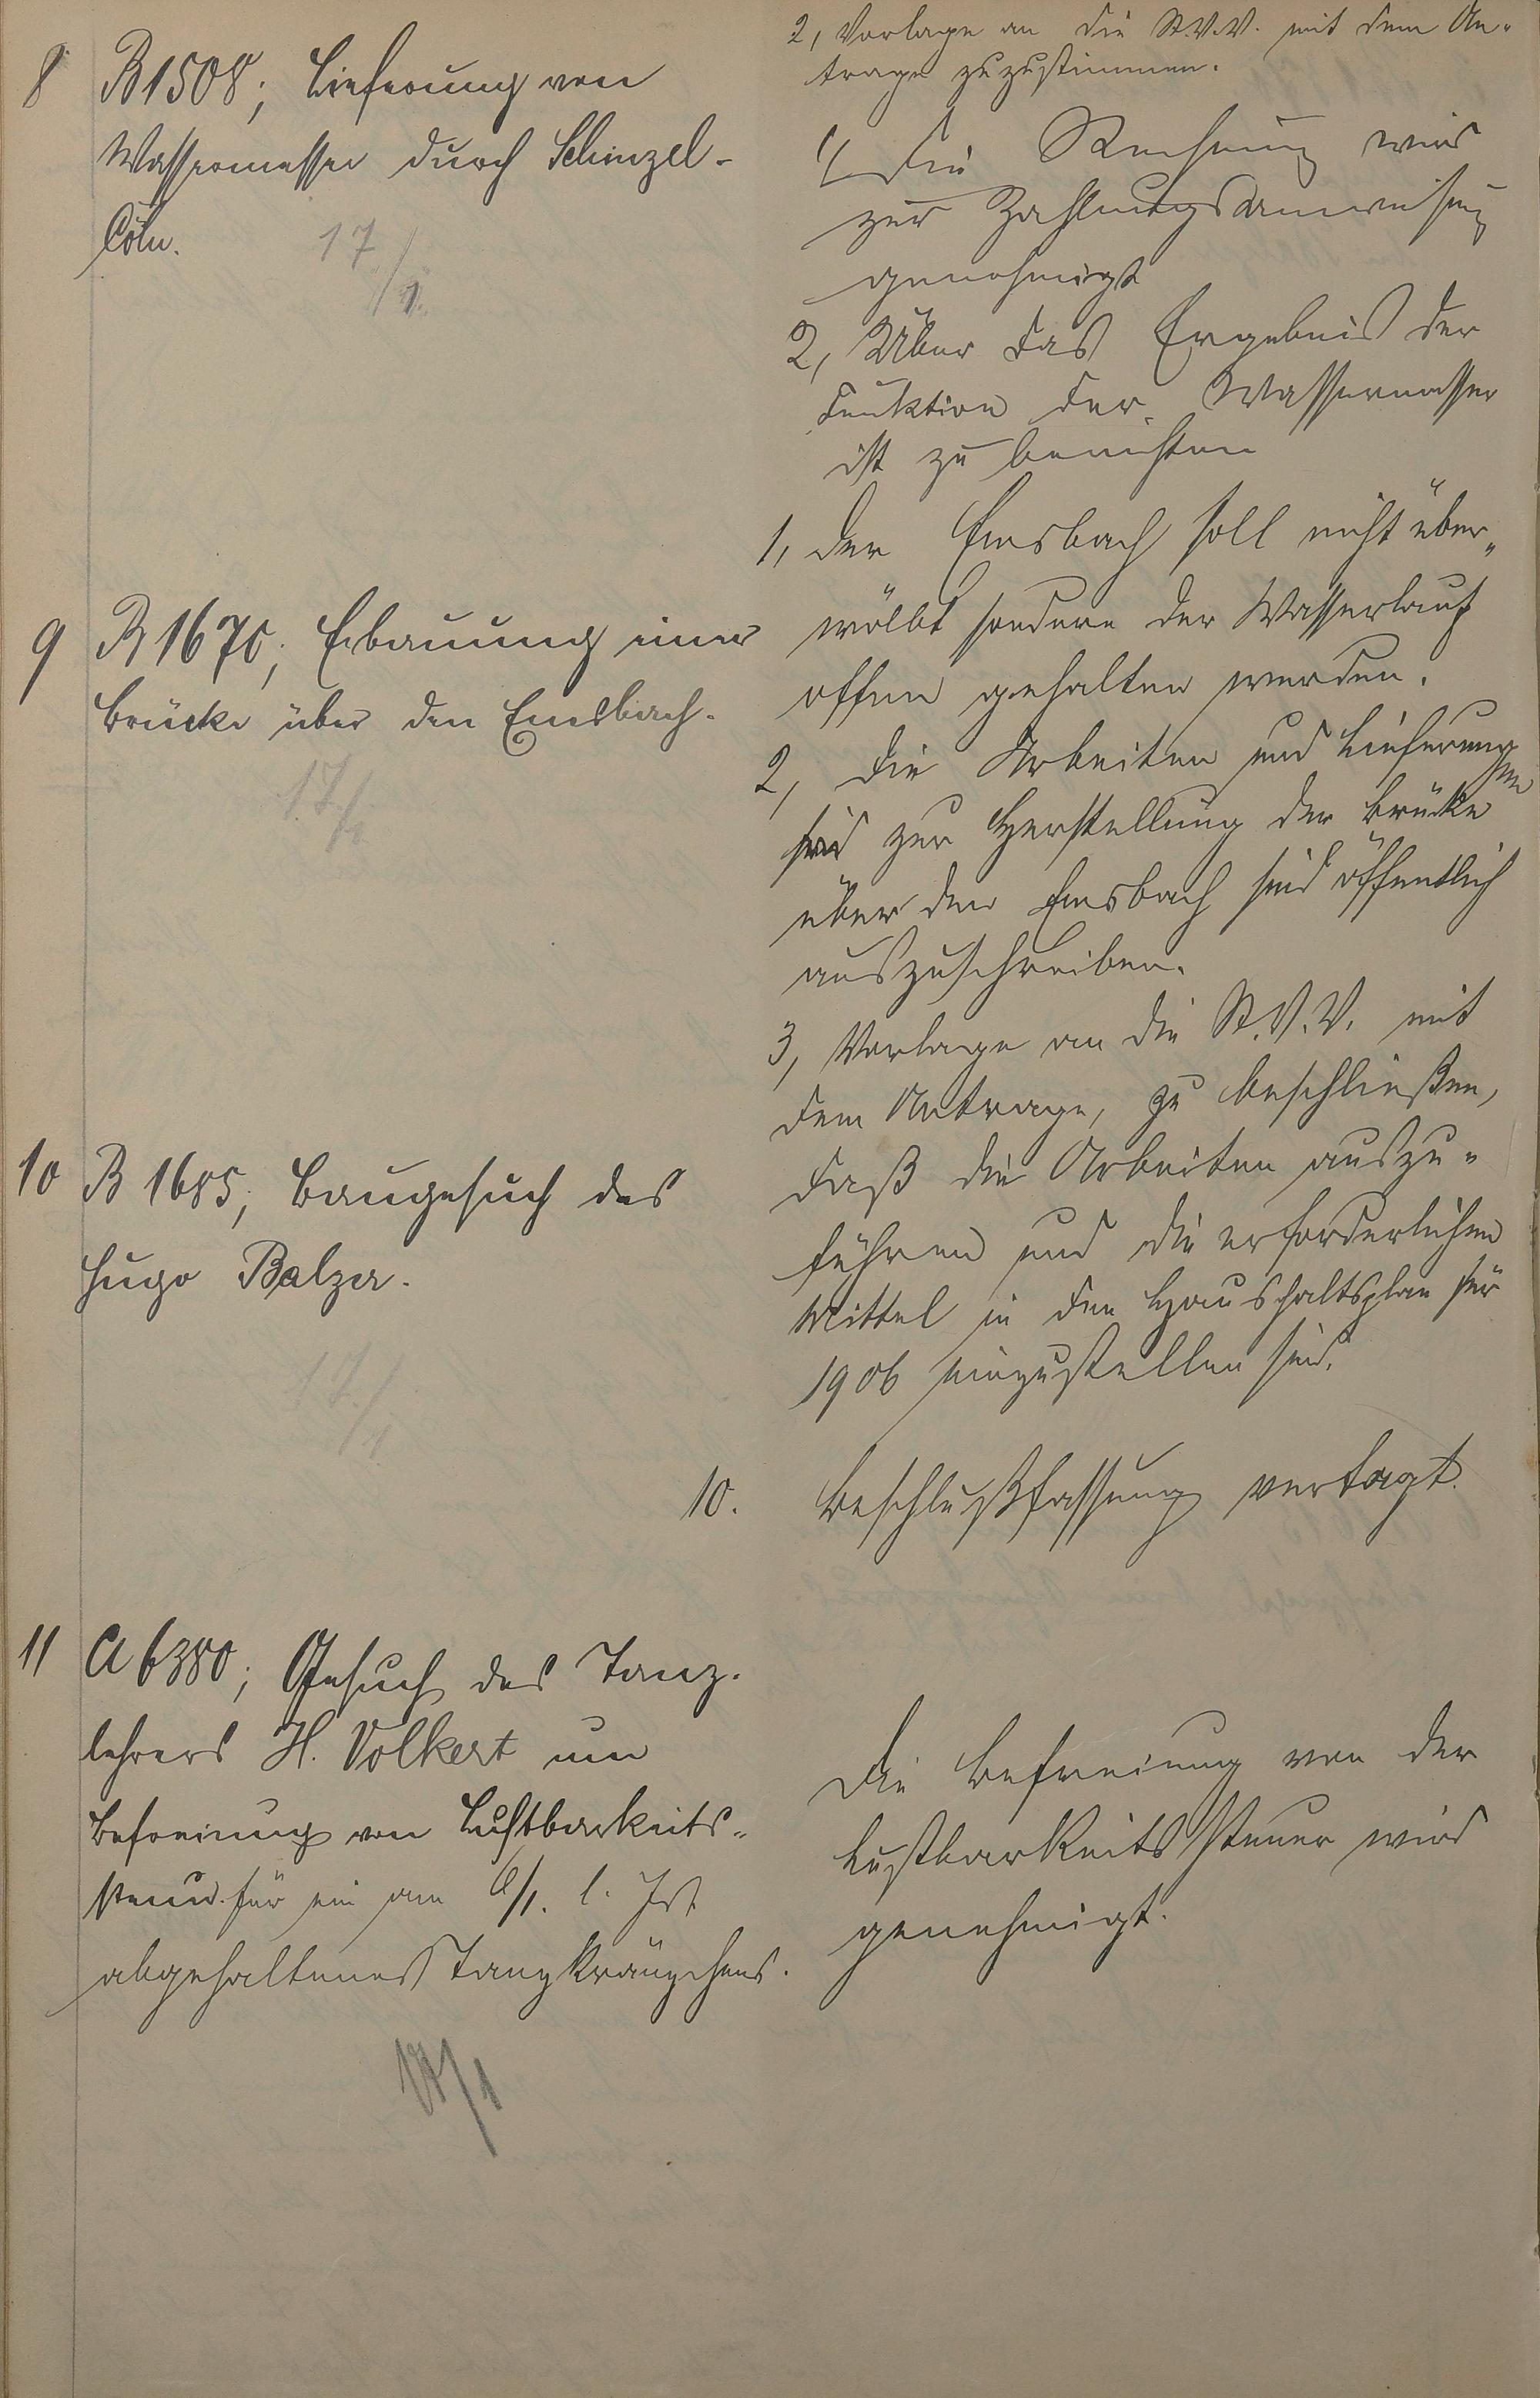 2, Vorlage an die St.V.V. mit dem An-
trage zuzustimmen.
8 B 1508; Lieferung von
Wassermesser durch Schinzel-
Cöln.
17/1.
1, Die Rechnung wird
zur Zahlungsanweisung
genehmigt
2, Über das Ergebnis der
Funktion der Wassermesser
ist zu berichten
9 B 1670; Erbauung einer
Brücke über den Emsbach.
17/1
1, Der Emsbach soll nicht über-
wölbt sondern der Wasserlauf
offen gehalten werden.
2, Die Arbeiten und Lieferungen
zur Herstellung der Brücke
über den Emsbach sind öffentlich
auszuschreiben.
3, Vorlage an die St.V.V. mit
dem Antrage, zu beschließen,
daß die Arbeiten auszu-
führen und die erforderlichen
Mittel in den Haushaltsplan für
1906 einzustellen sind.
10 B 1685; Baugesuch des
Hugo Balzer.
17/1
10. Beschlußfassung vertagt.
11 A 6380; Gesuch des Tanz-
lehrers H. Volkert um
Befreiung von Lustbarkeits-
steuer für ein am 6/1. l. Js.
abgehaltenes Tanzkränzchens.
17/1
Die Befreiung von der
Lustbarkeitssteuer wird
genehmigt.